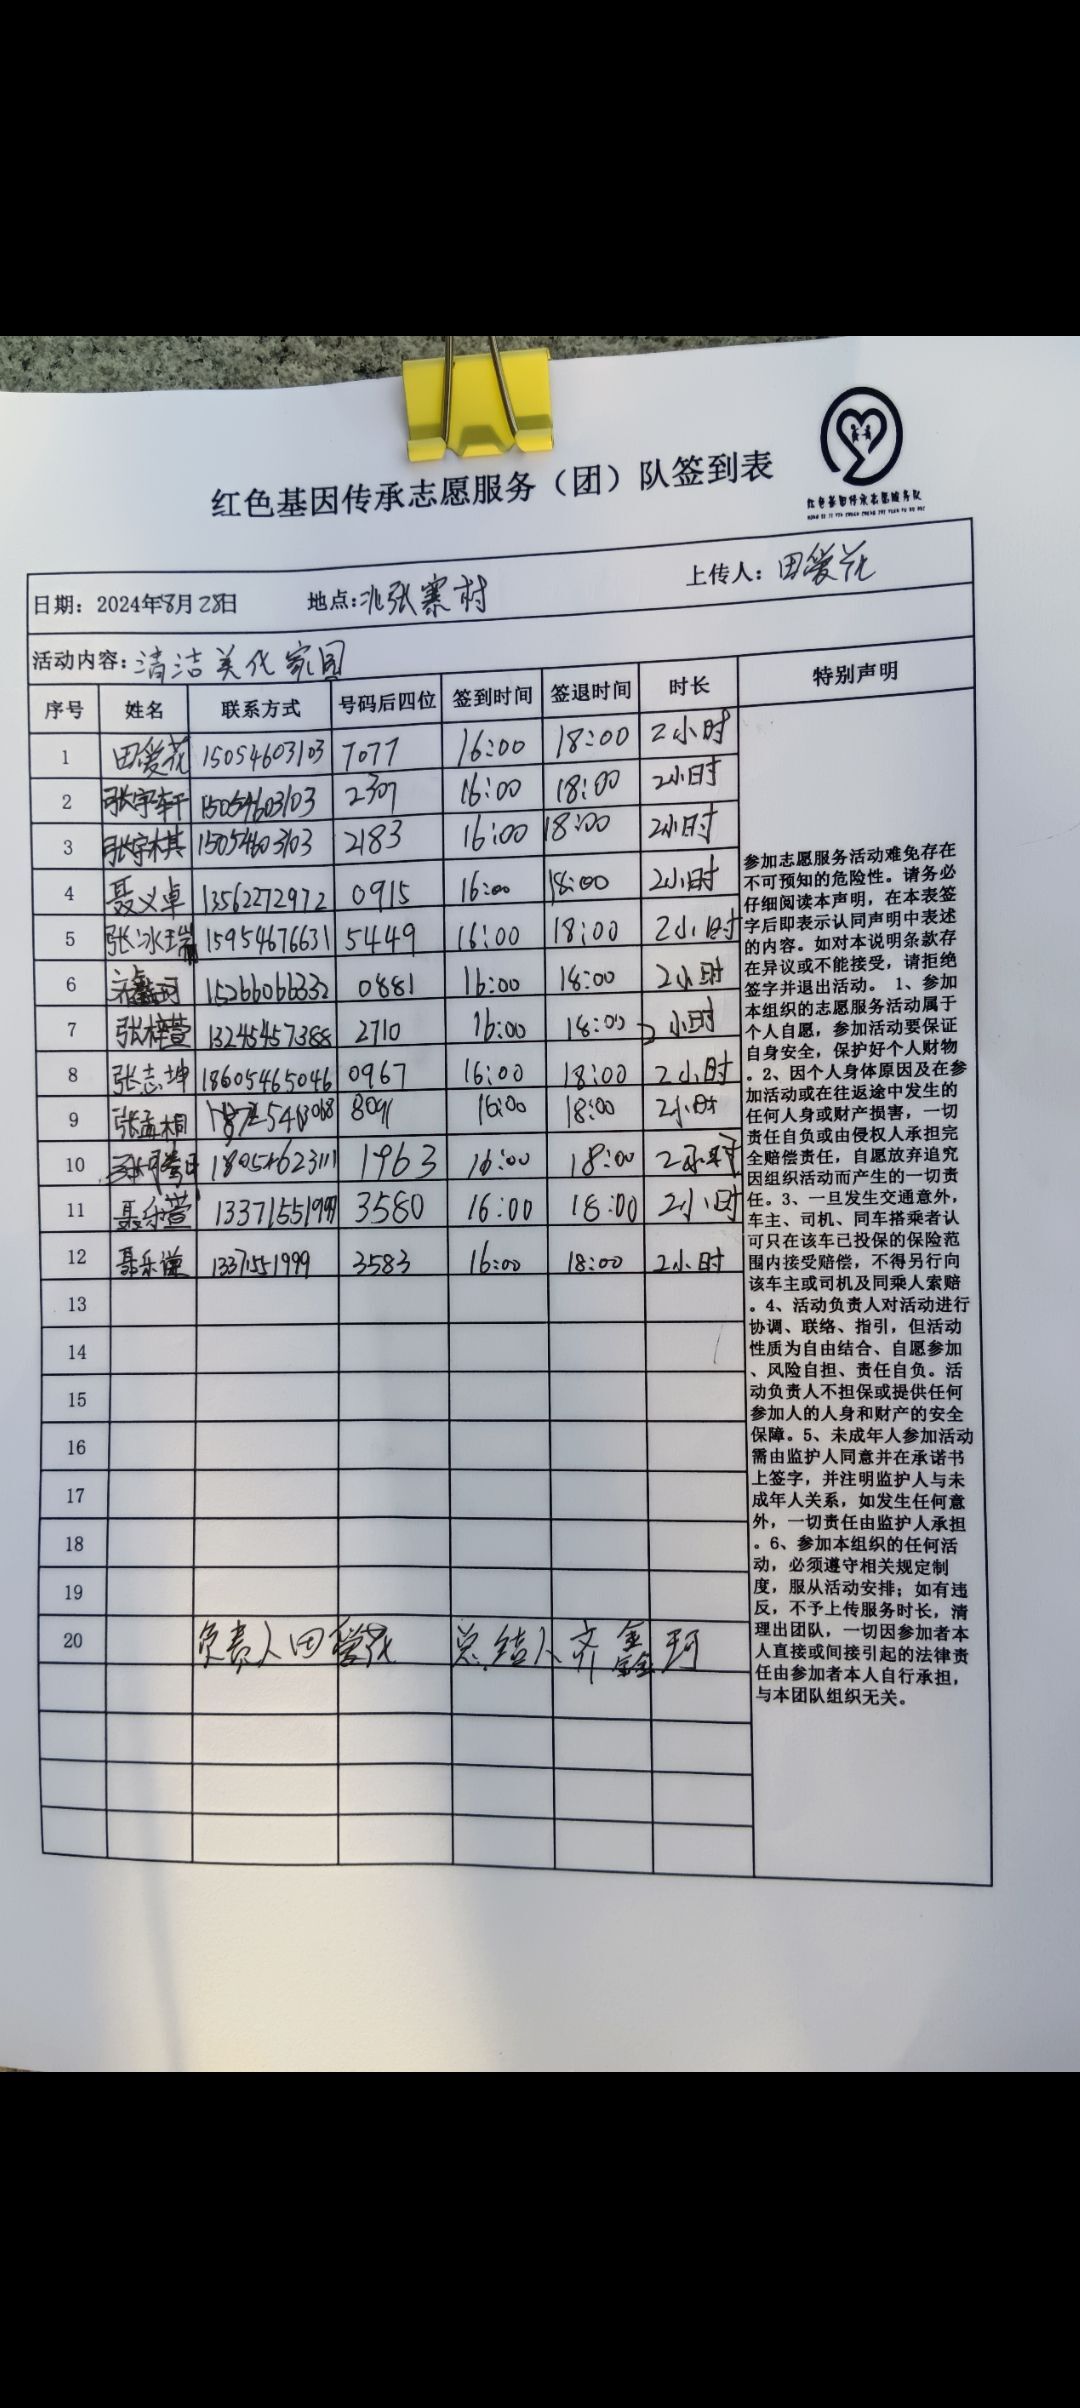 红色基因传承志愿服务（团）队签到表
红色基因传承志愿服务队
日期：2024年8月28日 地点：北张寨村 上传人：田爱花
活动内容：清洁美化家园
序号 姓名 联系方式 号码后四位 签到时间 签退时间 时长 特别声明
1 田爱花 15054603103 7077 16:00 18:00 2小时
2 张宇轩 15054603103 2307 16:00 18:00 2小时
3 张宇棋 15054603103 2183 16:00 18:00 2小时
4 聂义卓 13562272972 0915 16:00 18:00 2小时
5 张冰瑞 15954676631 5449 16:00 18:00 2小时
6 齐鑫珂 15266066332 0881 16:00 18:00 2小时
7 张梓萱 13245457388 2710 16:00 18:00 2小时
8 张志坤 18605465046 0967 16:00 18:00 2小时
9 张孟桐 8091 16:00 18:00 2小时
10 18054623111 1963 16:00 18:00 2小时
11 聂乐萱 13371551999 3580 16:00 18:00 2小时
12 聂乐 13371551999 3583 16:00 18:00 2小时
13
14
15
16
17
18
19
20 负责人田爱花 总结人齐鑫珂
参加志愿服务活动难免存在
不可预知的危险性。请务必
仔细阅读本声明，在本表签
字后即表示认同声明中表述
的内容。如对本说明条款存
在异议或不能接受，请拒绝
签字并退出活动。 1、参加
本组织的志愿服务活动属于
个人自愿，参加活动要保证
自身安全，保护好个人财物
。2、因个人身体原因及在参
加活动或在往返途中发生的
任何人身或财产损害，一切
责任自负或由侵权人承担完
全赔偿责任，自愿放弃追究
因组织活动而产生的一切责
任。3、一旦发生交通意外，
车主、司机、同车搭乘者认
可只在该车已投保的保险范
围内接受赔偿，不得另行向
该车主或司机及同乘人索赔
。4、活动负责人对活动进行
协调、联络、指引，但活动
性质为自由结合、自愿参加
、风险自担、责任自负。活
动负责人不担保或提供任何
参加人的人身和财产的安全
保障。5、未成年人参加活动
需由监护人同意并在承诺书
上签字，并注明监护人与未
成年人关系，如发生任何意
外，一切责任由监护人承担
。6、参加本组织的任何活
动，必须遵守相关规定制
度，服从活动安排；如有违
反，不予上传服务时长，清
理出团队，一切因参加者本
人直接或间接引起的法律责
任由参加者本人自行承担，
与本团队组织无关。